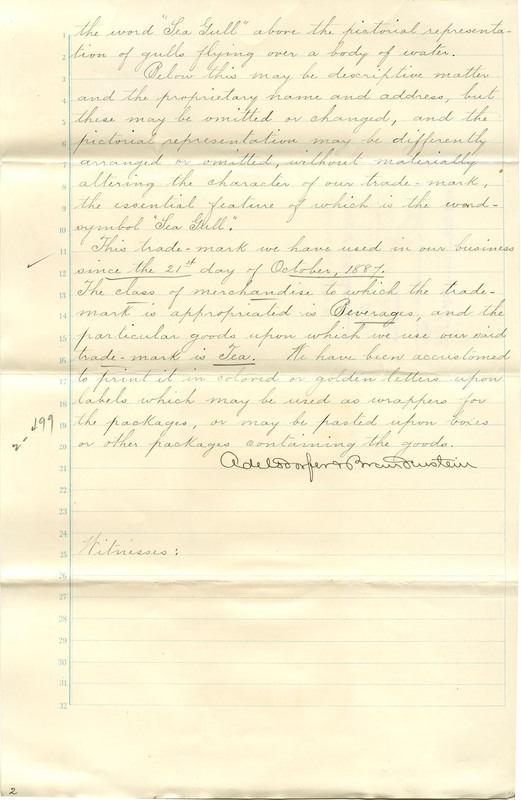 the word "Sea Gull" above the pictorial representa-
tion of gulls flying over a body of water.
Below this may be descriptive matter
and the proprietary name and address, but
these may be omitted or changed, and the
pictorial representation may be differently
arranged or omitted, without materially
altering the character of our trade-mark,
the essential feature of which is the word-
symbol "Sea Gull".
This trade-mark we have used in our business
since the 21st day of October, 1887.
The class of merchandise to which the trade-
mark is appropriated is Beverages, and the
particular goods upon which we use our said
trade-mark is Tea. We have been accustomed
to print it in colored or golden letters upon
labels which may be used as wrappers for
the packages, or may be pasted upon boxes
or other packages containing the goods.
Adelsdorfer & Brandenstein
Witnesses:
1
2
3
4
5
6
7
8
9
10
11
12
13
14
15
16
17
18
19
20
21
22
23
24
25
26
27
28
29
30
31
32
2